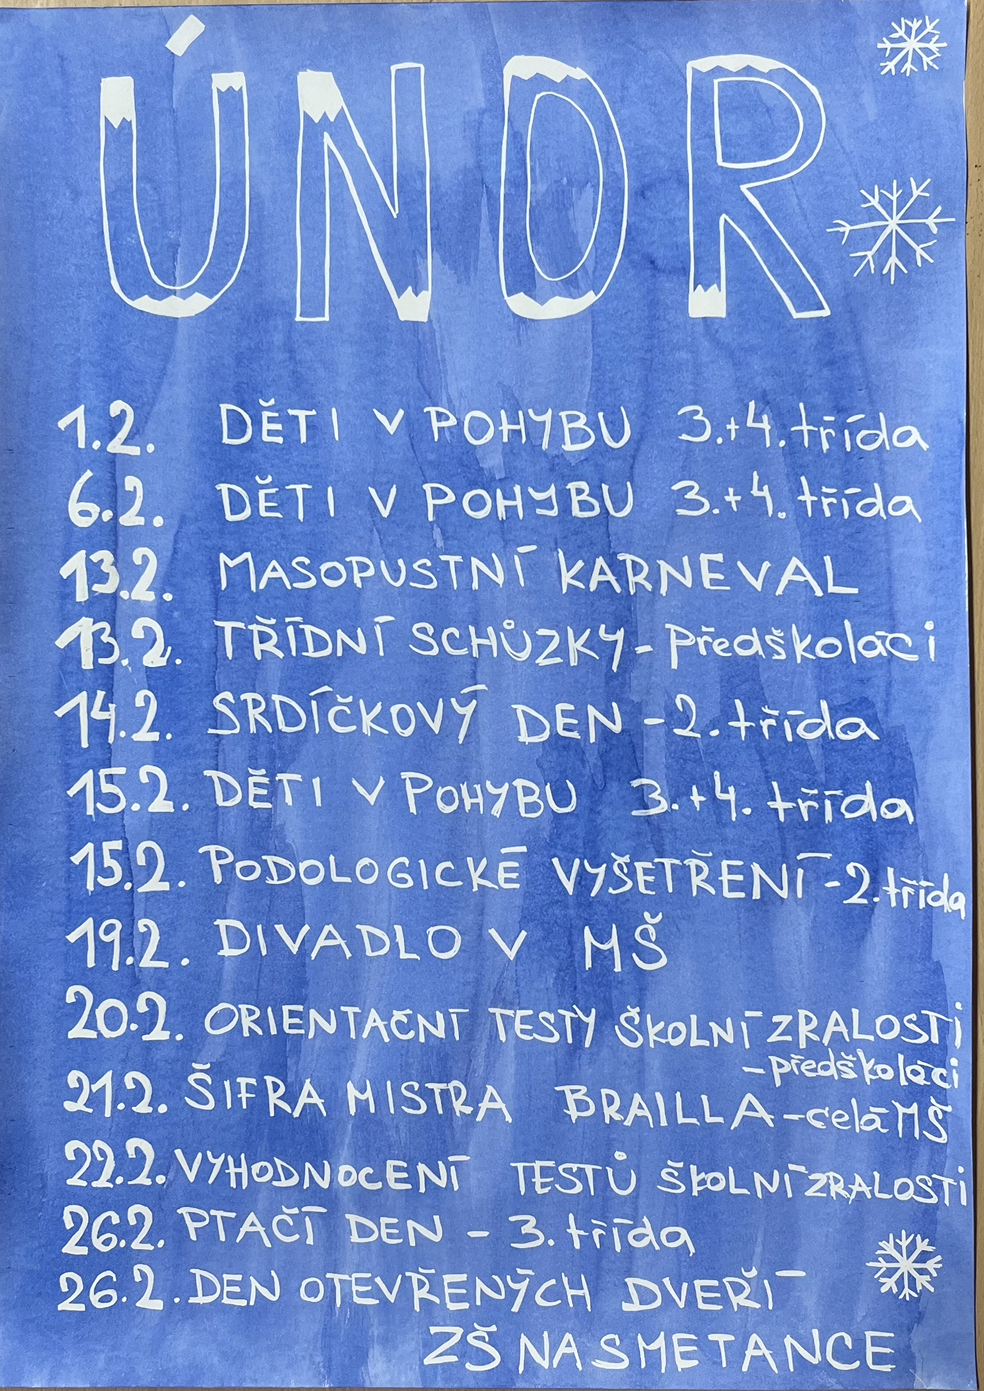 ÚNOR
1.2. DĚTI V POHYBU 3.+4. třída
6.2. DĚTI V POHYBU 3.+4. třída
13.2. MASOPUSTNÍ KARNEVAL
13.2. TŘÍDNÍ SCHŮZKY - Předškoláci
14.2. SRDÍČKOVÝ DEN - 2. třída
15.2. DĚTI V POHYBU 3.+4. třída
15.2. PODOLOGICKÉ VYŠETŘENÍ - 2. třída
19.2. DIVADLO V MŠ
20.2. ORIENTAČNÍ TESTY ŠKOLNÍ ZRALOSTI
- předškoláci
21.2. ŠIFRA MISTRA BRAILLA - celá MŠ
22.2. VYHODNOCENÍ TESTŮ ŠKOLNÍ ZRALOSTI
26.2. PTAČÍ DEN - 3. třída
26.2. DEN OTEVŘENÝCH DVEŘÍ
ZŠ NA SMETANCE